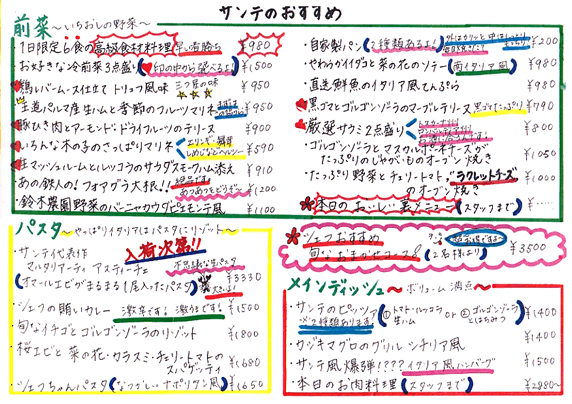 サンテのおすすめ
前菜 ～いちおしの野菜～
1日限定6食の高級食材料理 早い者勝ち ¥980
お好きな冷前菜3点盛り(♥印の中から選べるよ) ¥1500
鶏レバームース仕立て トリュフ風味 三ツ星の味 ¥950
王道パルマ産生ハムと季節のフルーツマリネ ¥950
豚ひき肉とアーモンド・ドライフルーツのテリーヌ ¥900
いろんな木の子のさっぱりマリネ ¥590
生マッシュルームとルッコラのサラダスモークハム添え ¥910
あの鉄人の!フォアグラ大根!! ¥1200
鈴木農園野菜のバーニャカウダピエモンテ風 ¥1100
・自家製パン(2種類あるよ!) ¥200
・やわらかイイダコと菜の花のソテー(南イタリア風) ¥980
・直送鮮魚のイタリア風てんぷら ¥980
黒ゴマとゴルゴンゾーラのマーブルテリーヌ 黒ゴマたっぷり ¥790
厳選サラミ2点盛り ¥800
・ゴルゴンゾーラとマスカルポーネチーズが
たっぷりのじゃがいものオーブン焼き ¥1050
・たっぷり野菜とチェリートマト、ラクレットチーズ
のオーブン焼き ¥1000
本日のおいしい裏メニュー(スタッフまで)
パスタ～やっぱりイタリアはパスタにリゾット～
入荷次第!!
・サンテ代表作
マルタリアーティ アスティーチェ
(オマールエビがまるまる1尾入ったパスタ) ¥3330
・シェフの賄いカレー 激辛です!激うまです! ¥1500
・旬なイチゴとゴルゴンゾーラのリゾット ¥1800
・桜エビと菜の花・カラスミ・チェリートマトの
スパゲッティ ¥1680
・シェフちゃんパスタ(なつかしいナポリタン風) ¥1650
シェフおすすめ
旬なおまかせコース (2名様より) ¥3500
メインディッシュ～ボリューム満点～
・サンテのピッツァ (①トマト・ルッコラ 生ハム or ②ゴルゴンゾーラ とはちみつ) ¥1400
2種類あります
・カジキマグロのグリル シチリア風 ¥1400
・サンテ風爆弾!???イタリア風ハンバーグ ¥1500
・本日のお肉料理(スタッフまで) ¥2980～